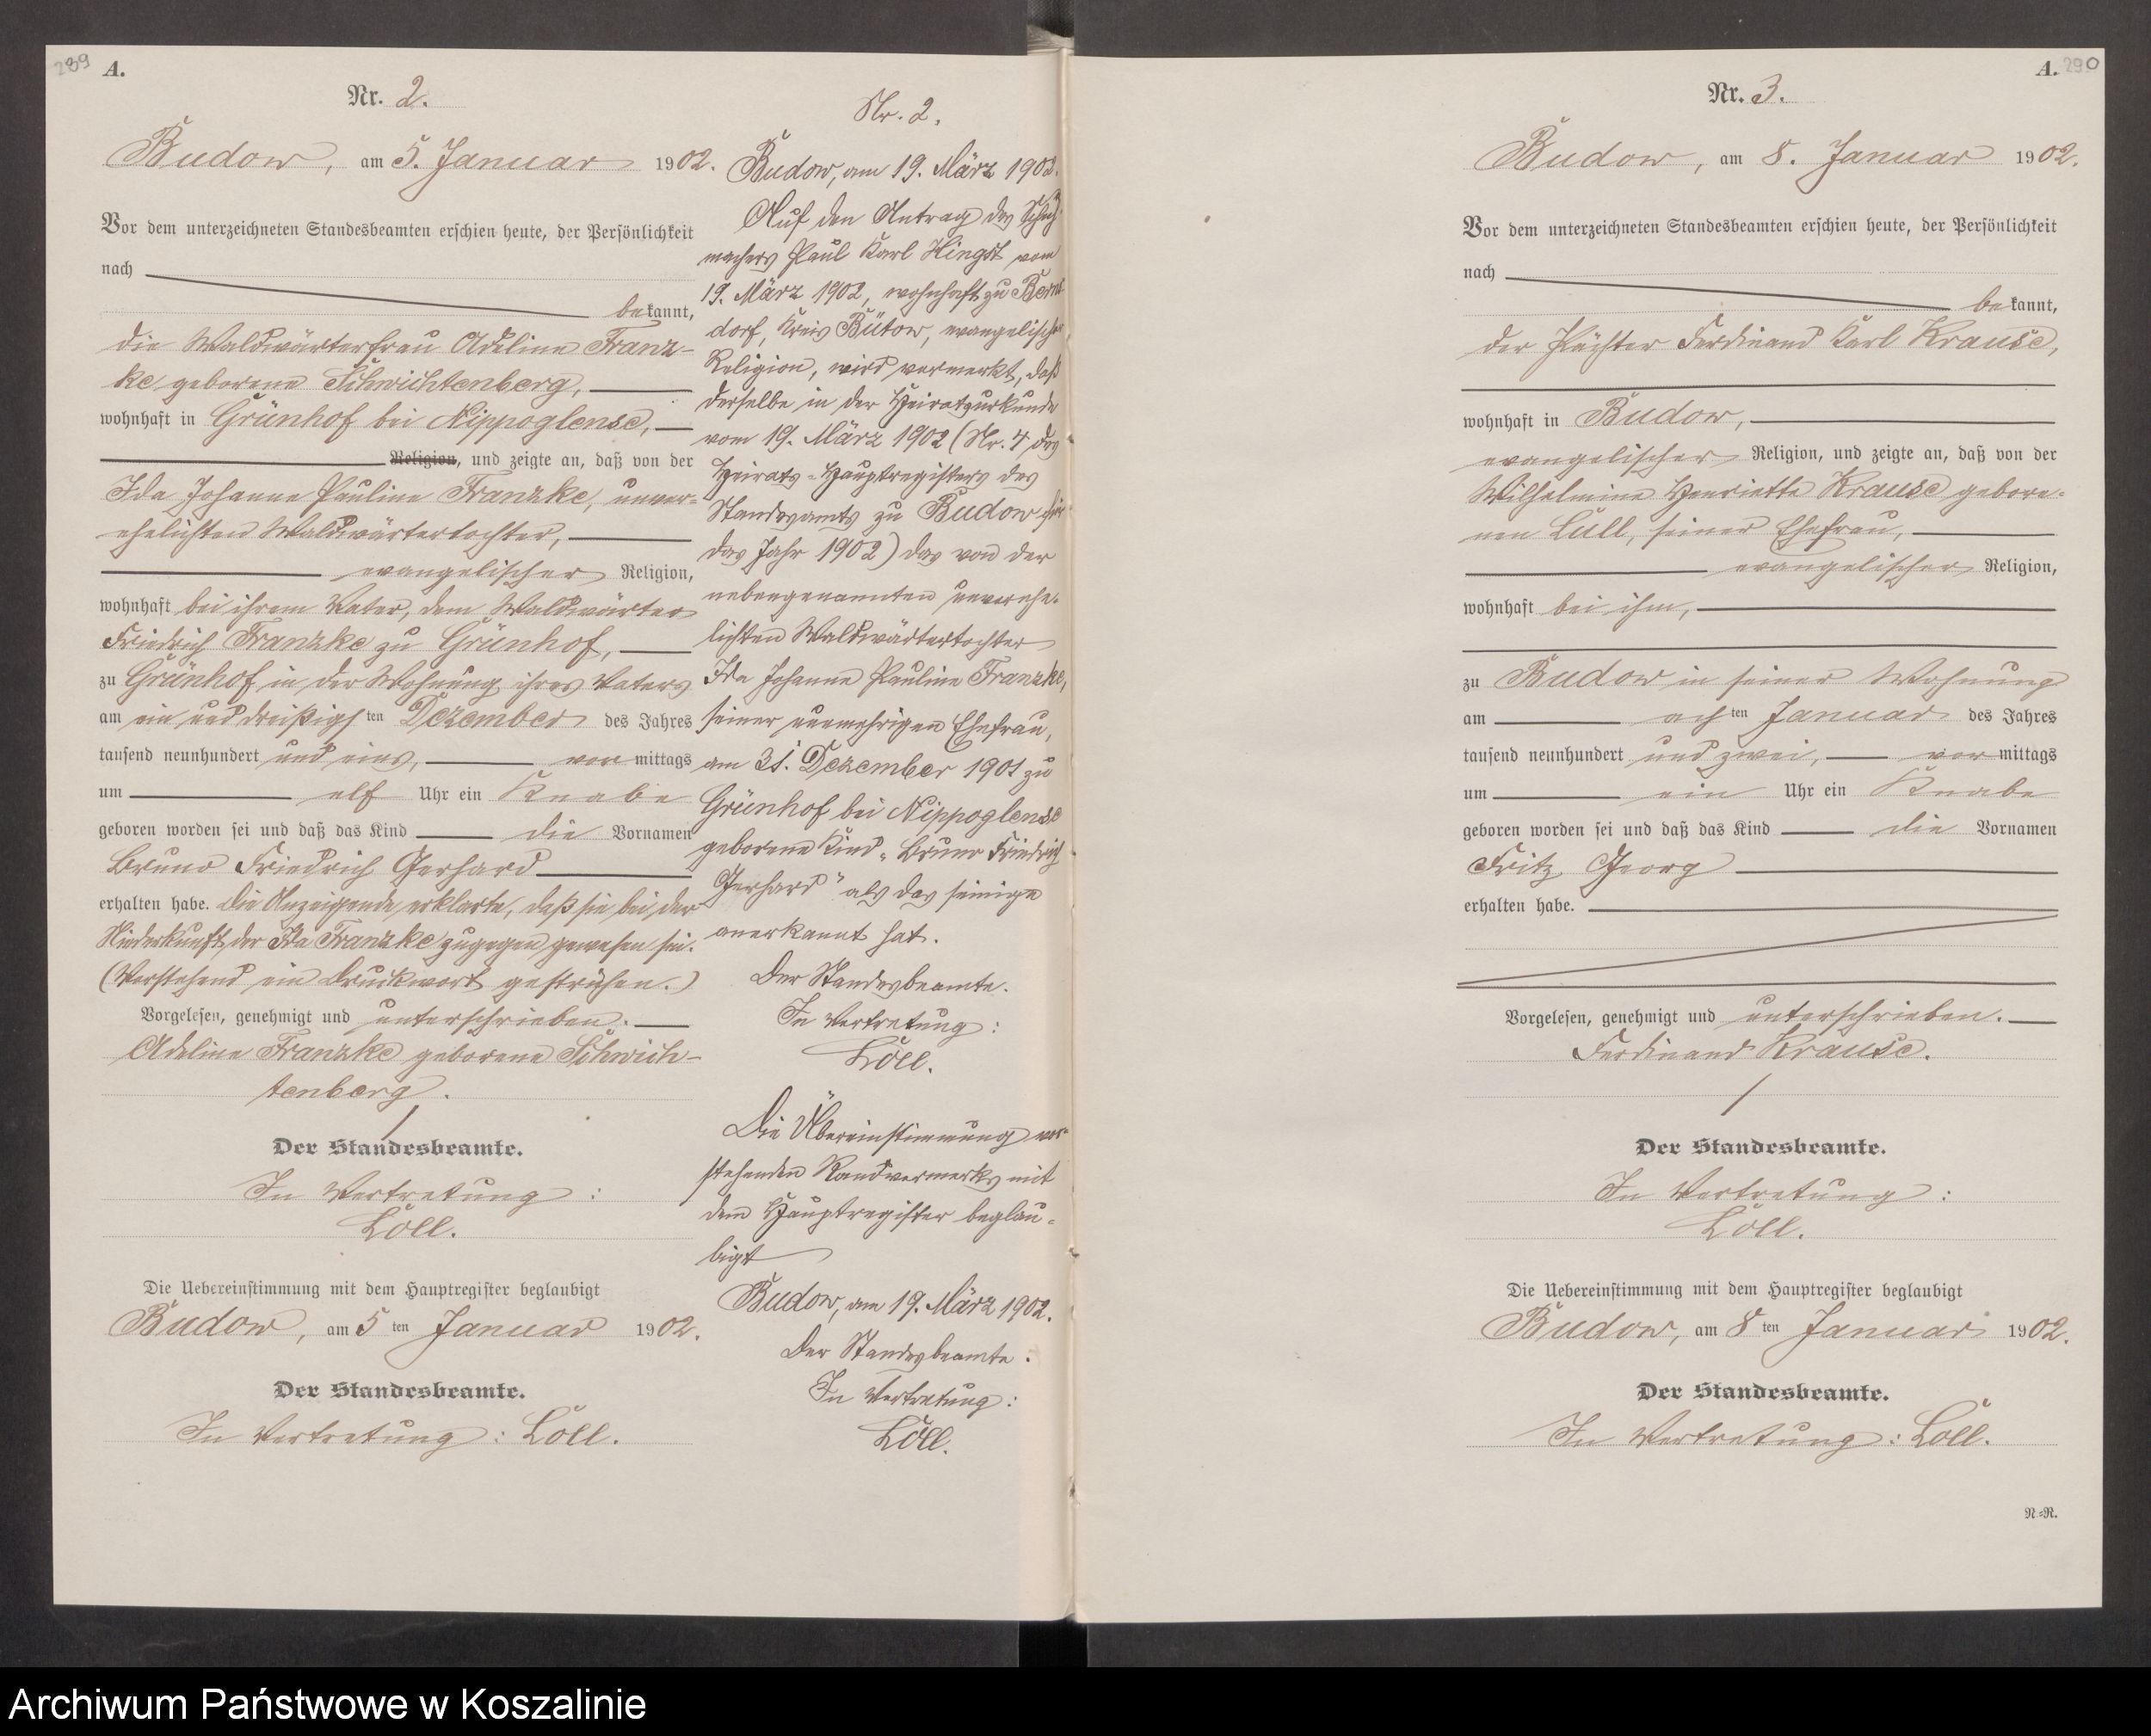 289 A.
Nr. 2.
Budow, am 5. Januar 1902.
Vor dem unterzeichneten Standesbeamten erschien heute, der Persönlichkeit
nach
bekannt,
die Waldwärterfrau Adeline Franz-
ke geborene Schwichtenberg,
wohnhaft in Grünhof bei Nippoglense,
Religion, und zeigte an, daß von der
Ida Johanne Pauline Franzke, unver-
ehelichten Waldwärtertochter,
evangelischer Religion,
wohnhaft bei ihrem Vater, dem Waldwärter
Friedrich Franzke zu Grünhof,
zu Grünhof in der Wohnung ihres Vaters
am ein und dreißigsten Dezember des Jahres
tausend neunhundert und eins, vormittags
um elf Uhr ein Knabe
geboren worden sei und daß das Kind die Vornamen
Bruno Friedrich Gerhard
erhalten habe. Die Anzeigende erklärte, daß sie bei der
Niederkunft der Ida Franzke zugegen gewesen sei.
(Vorstehend ein Druckwort gestrichen.)
Vorgelesen, genehmigt und unterschrieben.
Adeline Franzke geborene Schwich-
tenberg.
Der Standesbeamte.
In Vertretung:
Löll.
Die Uebereinstimmung mit dem Hauptregister beglaubigt
Budow, am 5ten Januar 1902.
Der Standesbeamte.
In Vertretung: Löll.
Nr. 2.
Budow, am 19. März 1902.
Auf den Antrag des Schuh-
machers Paul Karl Hingst vom
19. März 1902, wohnhaft zu Berns-
dorf, Kreis Bütow, evangelischer
Religion, wird vermerkt, daß
derselbe in der Heiratsurkunde
vom 19. März 1902 (Nr. 4 des
Heirats-Hauptregisters des
Standesamts zu Budow für
das Jahr 1902) das von der
nebengenannten unverehe-
lichten Waldwärtertochter
Ida Johanne Pauline Franzke,
seiner nunmehrigen Ehefrau,
am 31. Dezember 1901 zu
Grünhof bei Nippoglense
geborene Kind „Bruno Friedrich
Gerhard" als das seinige
anerkannt hat.
Der Standesbeamte.
In Vertretung:
Löll.
Die Übereinstimmung vor-
stehenden Randvermerks mit
dem Hauptregister beglau-
bigt
Budow, am 19. März 1902.
Der Standesbeamte.
In Vertretung:
Löll.
A. 290
Nr. 3.
Budow, am 8. Januar 1902.
Vor dem unterzeichneten Standesbeamten erschien heute, der Persönlichkeit
nach
bekannt,
der Pächter Ferdinand Karl Krause,
wohnhaft in Budow,
evangelischer Religion, und zeigte an, daß von der
Wilhelmine Henriette Krause gebore-
nen Lüll, seiner Ehefrau,
evangelischer Religion,
wohnhaft bei ihm,
zu Budow in seiner Wohnung
am achten Januar des Jahres
tausend neunhundert und zwei, vormittags
um ein Uhr ein Knabe
geboren worden sei und daß das Kind die Vornamen
Fritz Georg
erhalten habe.
Vorgelesen, genehmigt und unterschrieben.
Ferdinand Krause.
Der Standesbeamte.
In Vertretung:
Löll.
Die Uebereinstimmung mit dem Hauptregister beglaubigt
Budow, am 8ten Januar 1902.
Der Standesbeamte.
In Vertretung: Löll.
N=R.
Archiwum Państwowe w Koszalinie